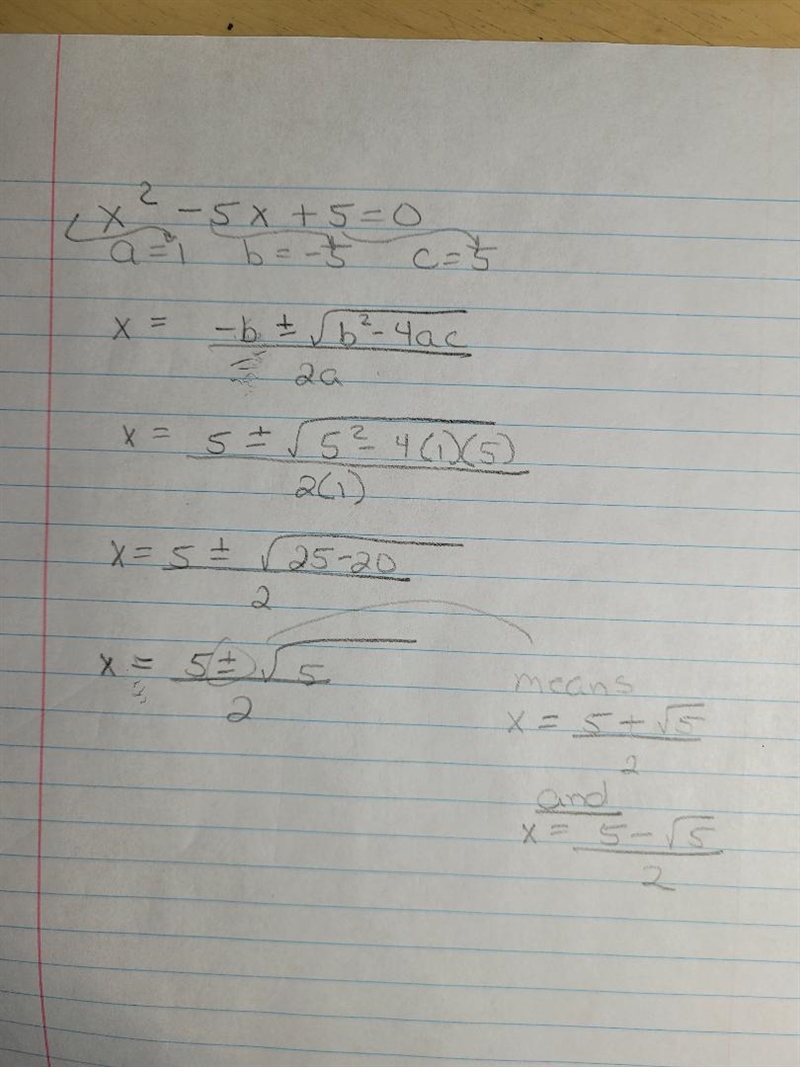 x² - 5x + 5 = 0
a = 1 b = -5 c = 5
x = -b ± √b² - 4ac
2a
x = 5 ± √5² - 4(1)(5)
2(1)
x = 5 ± √25-20
2
x = 5 ± √5
2
means
x = 5 + √5
2
and
x = 5 - √5
2